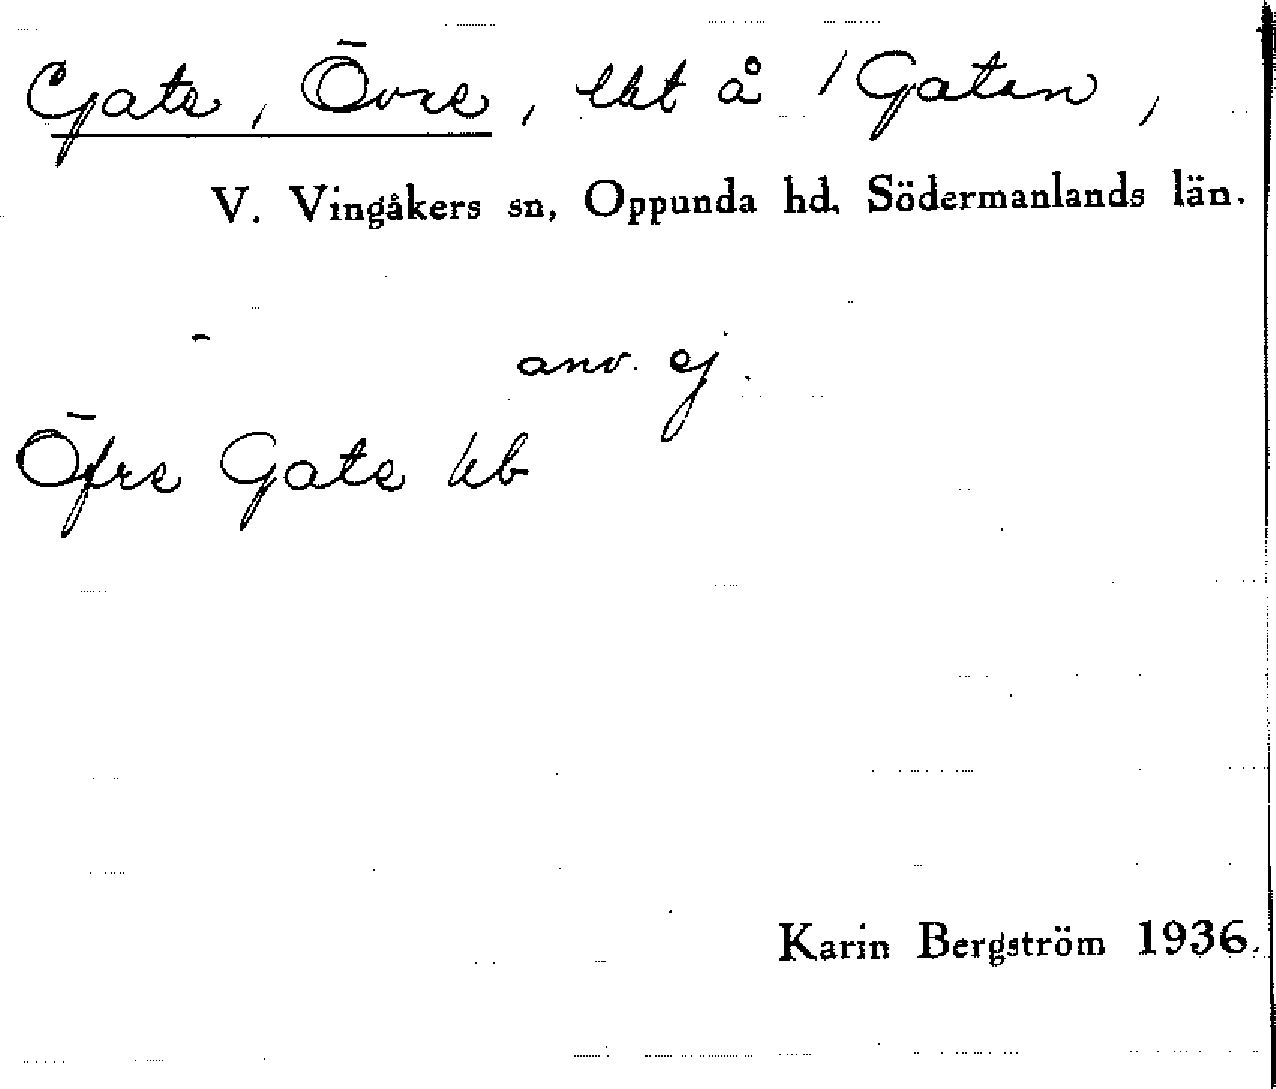 Gate, Övre, lht å 1 Gaten,
V. Vingåkers sn, Oppunda hd, Södermanlands län.
- anv. ej.
Öfre Gate kb
Karin Bergström 1936.